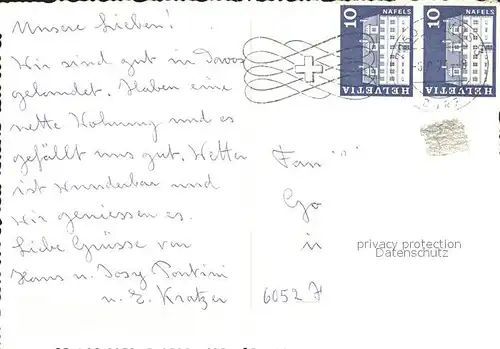 Unsere Lieben!
Wir sind gut in Davos
gelandet. Haben eine
nette Wohnung und es
gefällt uns gut. Wetter
ist Wunderbar und
wir geniessen es.
Liebe Grüsse von
Hans u. Josy Pontini
u. E. Kratzer
10 NÄFELS HELVETIA
10 NÄFELS HELVETIA
Fam
Go
in
6052 H
privacy protection
Datenschutz